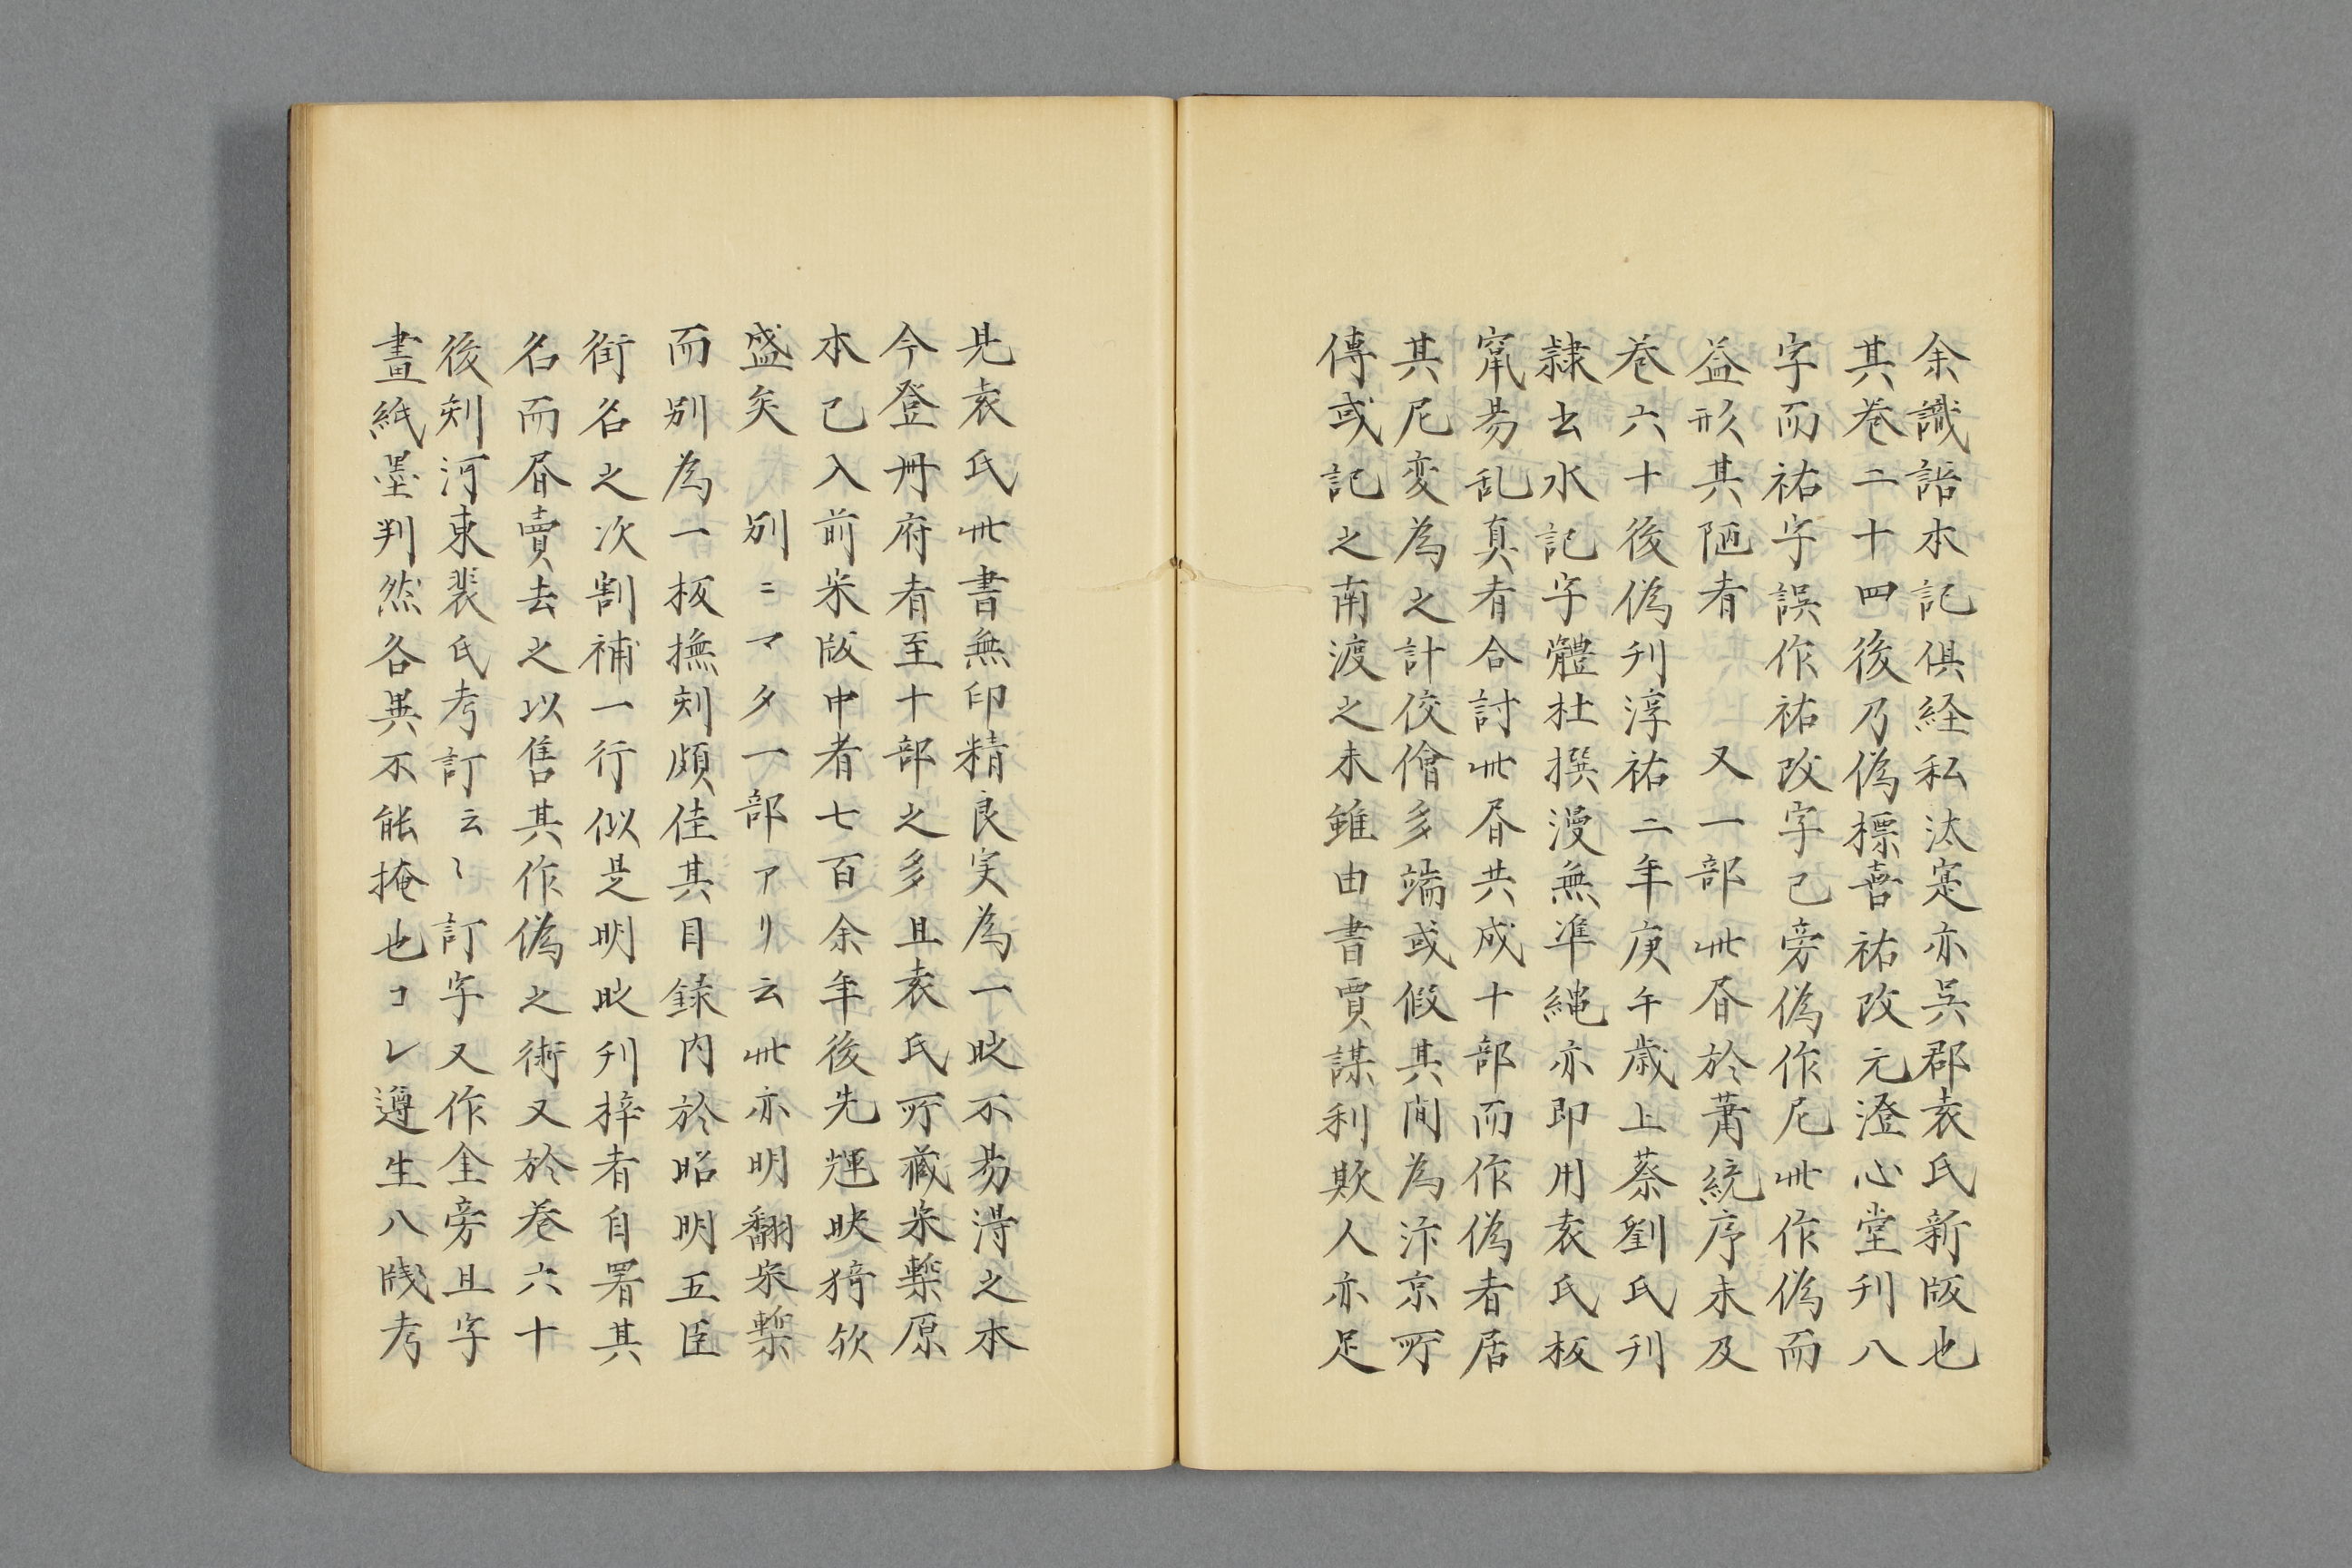 余識語本記俱経私汰寔亦呉郡袁氏新版也
其巻二十四後乃偽標喜祐改元澄心堂刊八
字而祐字誤作祐改字己旁偽作尼此作偽而
益形其陋者　又一部此昏於蕭統序末及
巻六十後偽刊淳祐二年庚午歳上蔡劉氏刊
隷去水記字體杜撰漫無準縄亦即用袁氏板
竄易乱真者合討此昏共成十部而作偽者居
其尼変為之計佼儈多端或假其間為汴京所
傳或記之南渡之末雖由書賈謀利欺人亦足
見袁氏此書無印精良実為一时不易得之本
今登冊府者至十部之多且袁氏所蔵宋槧原
本已入前宋版中者七百余年後先輝映猗欤
盛矣　別ニマタ一部アリ云此亦明翻宋槧
而別為一板撫刻頗佳其目録内於昭明五臣
銜名之次割補一行似是明时刊梓者自署其
名而昏賣去之以售其作偽之術又於巻六十
後刻河東裴氏考訂云〻訂字又作金旁且字
畫紙墨判然各異不能掩也コレ遵生八牋考